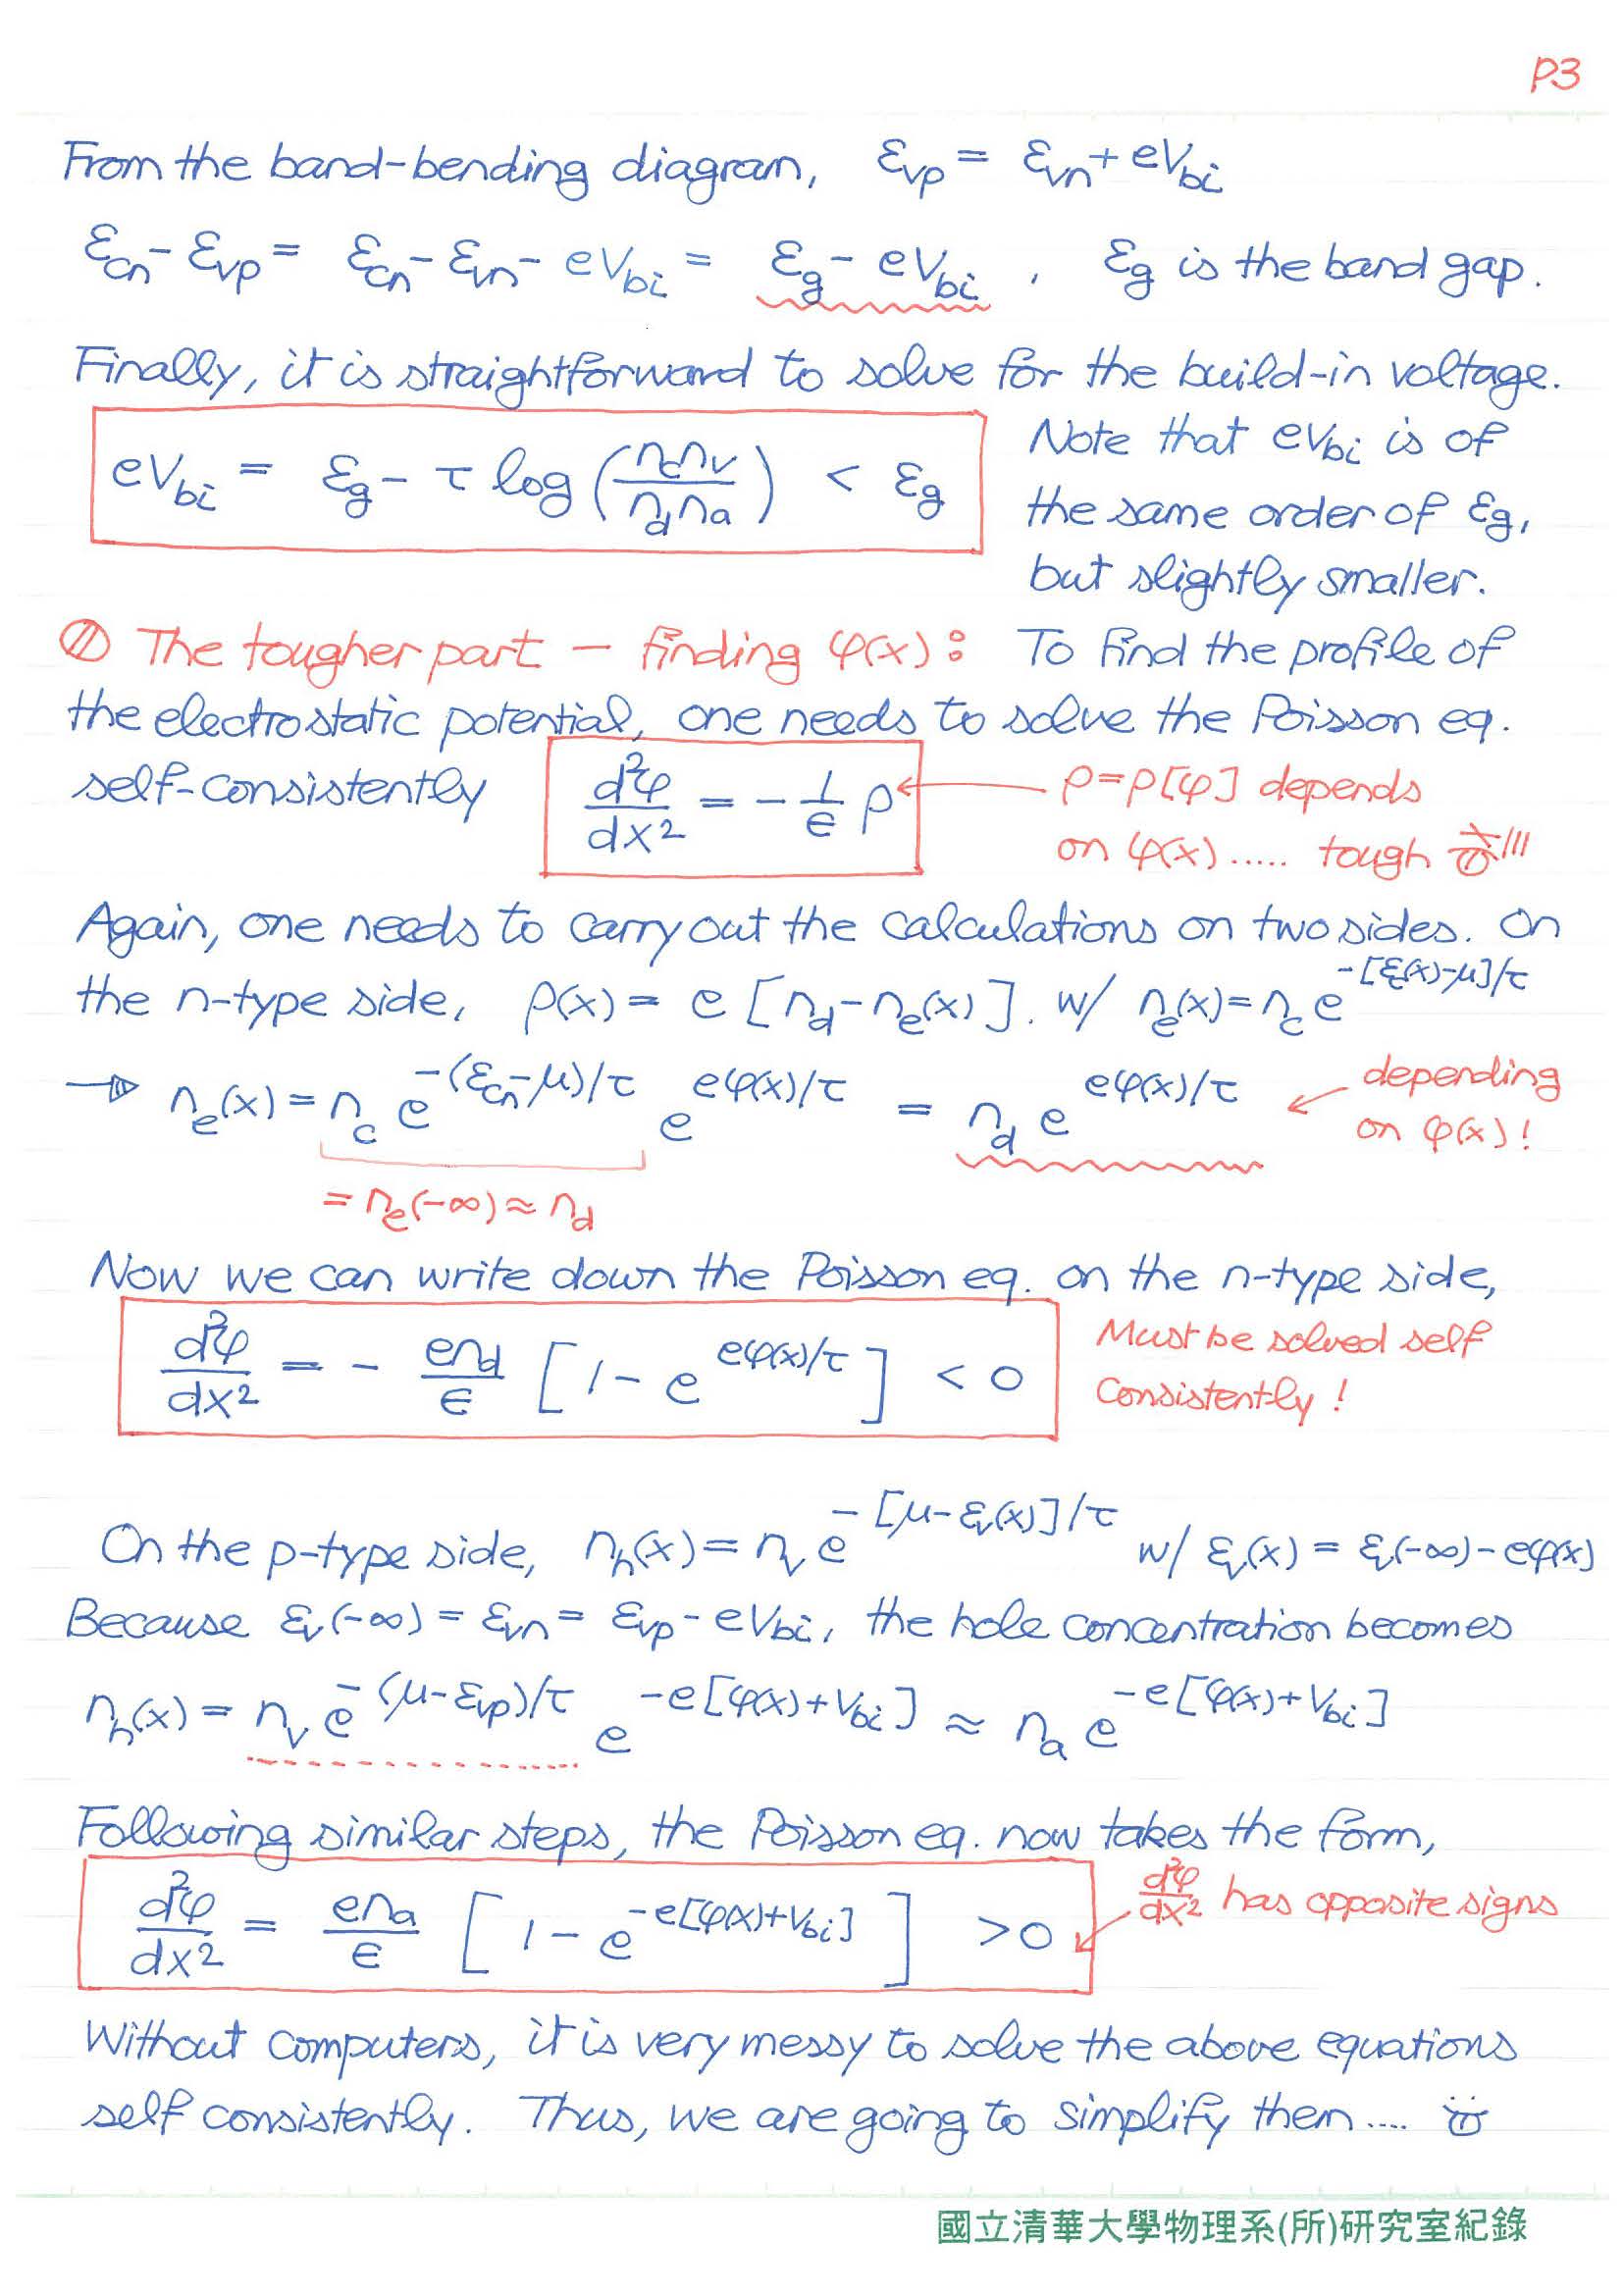 P3
From the band-bending diagram, εvp = εvn + eVbi
εcn - εvp = εcn - εvn - eVbi = εg - eVbi , εg is the band gap.
Finally, it is straightforward to solve for the build-in voltage.
eVbi = εg - τ log (ncnv / ndna) < εg
Note that eVbi is of
the same order of εg,
but slightly smaller.
The tougher part — finding φ(x): To find the profile of
the electrostatic potential, one needs to solve the Poisson eq.
self-consistently d²φ/dx² = - 1/ϵ ρ ← ρ=ρ[φ] depends
on φ(x)..... tough
Again, one needs to carry out the calculations on two sides. On
the n-type side, ρ(x) = e [nd - ne(x)]. w/ ne(x) = nc e^-[εc(x)-μ]/τ
→ ne(x) = nc e^-(εcn-μ)/τ e^eφ(x)/τ = nd e^eφ(x)/τ ← depending
on φ(x)!
= ne(-∞) ≈ nd
Now we can write down the Poisson eq. on the n-type side,
d²φ/dx² = - end/ϵ [1 - e^eφ(x)/τ] < 0
Must be solved self
consistently!
On the p-type side, nh(x) = nv e^-[μ-εv(x)]/τ w/ εv(x) = εv(-∞) - eφ(x)
Because εv(-∞) = εvn = εvp - eVbi, the hole concentration becomes
nh(x) = nv e^-(μ-εvp)/τ e^-e[φ(x)+Vbi] ≈ na e^-e[φ(x)+Vbi]
Following similar steps, the Poisson eq. now takes the form,
d²φ/dx² = ena/ϵ [1 - e^-e[φ(x)+Vbi]] >0
d²φ/dx² has opposite signs
Without computers, it is very messy to solve the above equations
self consistently. Thus, we are going to simplify them ....
國立清華大學物理系(所)研究室紀錄